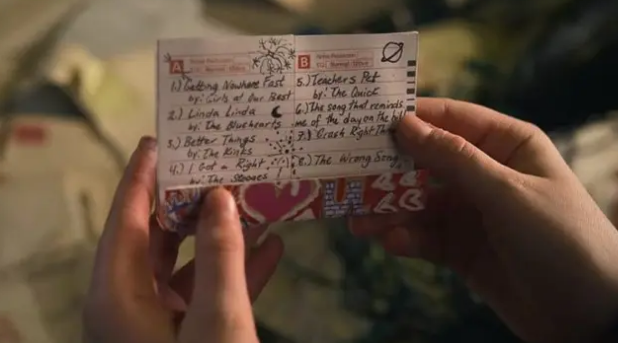 A
1.) Getting Nowhere Fast
by: Girls at Our Best
2.) Linda Linda
by: The Bluehearts
3.) Better Things
by: The Kinks
4.) I Got a Right
by: The Stooges
B
5.) Teachers Pet
by: The Quick
6.) The song that reminds
me of the day on the
7.) Crash Right
8.) The Wrong Song